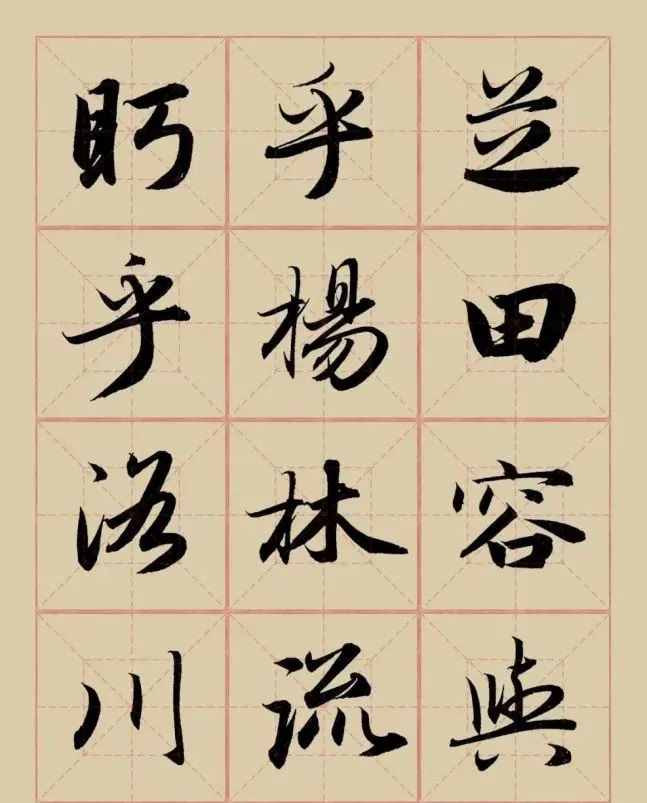 芝田容與
乎楊林流
眄乎洛川